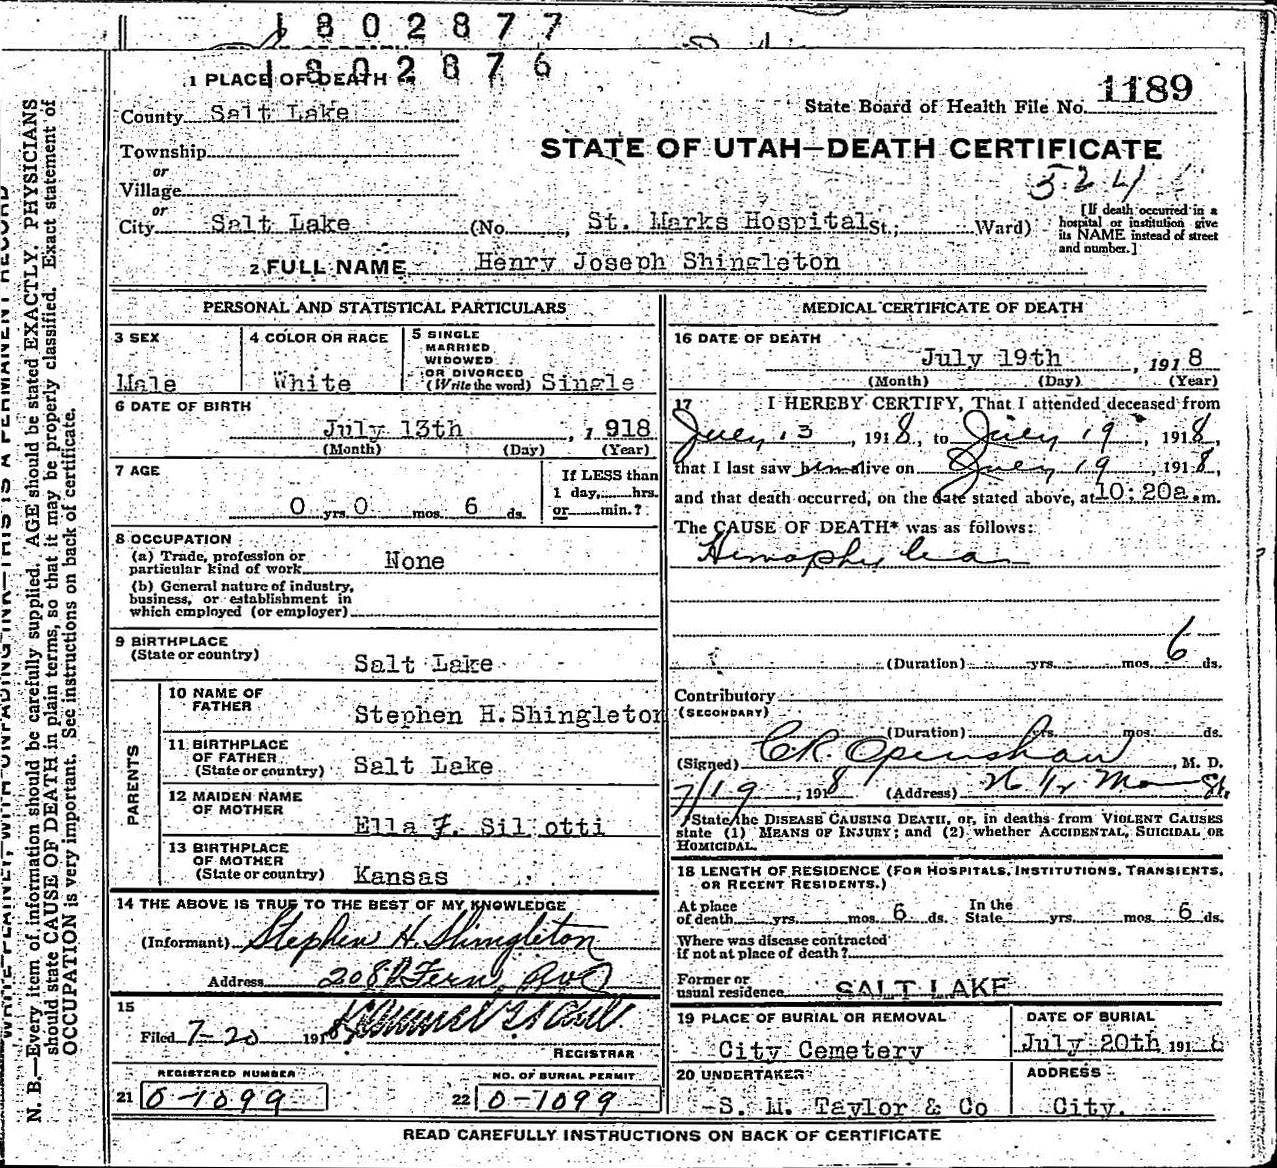 1802877
1802876
1 PLACE OF DEATH
State Board of Health File No. 1189
County Salt Lake
STATE OF UTAH—DEATH CERTIFICATE
Township
or
524
Village
or
City Salt Lake (No. , St. Marks Hospital St.; Ward)
[If death occurred in a
hospital or institution give
its NAME instead of street
and number.]
2 FULL NAME Henry Joseph Shingleton
PERSONAL AND STATISTICAL PARTICULARS
3 SEX
Male
4 COLOR OR RACE
White
5 SINGLE
MARRIED
WIDOWED
OR DIVORCED
(Write the word) Single
6 DATE OF BIRTH
July 13th , 1 918
(Month) (Day) (Year)
7 AGE
0 yrs 0 mos. 6 ds.
If LESS than
1 day, hrs.
or min.?
8 OCCUPATION
(a) Trade, profession or
particular kind of work None
(b) General nature of industry,
business, or establishment in
which employed (or employer)
9 BIRTHPLACE
(State or country) Salt Lake
PARENTS
10 NAME OF
FATHER
Stephen H. Shingleton
11 BIRTHPLACE
OF FATHER
(State or country) Salt Lake
12 MAIDEN NAME
OF MOTHER
Ella F. Sil otti
13 BIRTHPLACE
OF MOTHER
(State or country) Kansas
14 THE ABOVE IS TRUE TO THE BEST OF MY KNOWLEDGE
(Informant) Stephen H. Shingleton
Address 208 Fern Ave
15
Filed 7-20 1918
REGISTRAR
REGISTERED NUMBER
21 0-1099
NO. OF BURIAL PERMIT
22 0-1099
MEDICAL CERTIFICATE OF DEATH
16 DATE OF DEATH
July 19th , 1918
(Month) (Day) (Year)
17 I HEREBY CERTIFY, That I attended deceased from
July 13 , 1918, to July 19 , 1918,
that I last saw him alive on July 19 , 1918,
and that death occurred, on the date stated above, at 10:20a.m.
The CAUSE OF DEATH* was as follows:
Hemophylia
(Duration) yrs. mos. 6 ds.
Contributory
(SECONDARY)
(Duration) yrs. mos. ds.
(Signed) C.R. Openshaw , M. D.
7/19 , 1918 (Address)
*State the DISEASE CAUSING DEATH, or, in deaths from VIOLENT CAUSES
state (1) MEANS OF INJURY; and (2) whether ACCIDENTAL, SUICIDAL OR
HOMICIDAL.
18 LENGTH OF RESIDENCE (FOR HOSPITALS, INSTITUTIONS, TRANSIENTS,
OR RECENT RESIDENTS.)
At place
of death yrs. mos. 6 ds.
In the
State yrs. mos. 6 ds.
Where was disease contracted
if not at place of death?
Former or
usual residence SALT LAKE
19 PLACE OF BURIAL OR REMOVAL
City Cemetery
DATE OF BURIAL
July 20th 191 8
20 UNDERTAKER
S. M. Taylor & Co
ADDRESS
City.
READ CAREFULLY INSTRUCTIONS ON BACK OF CERTIFICATE
WRITE PLAINLY, WITH UNFADING INK—THIS IS A PERMANENT RECORD
N. B.—Every item of information should be carefully supplied. AGE should be stated EXACTLY. PHYSICIANS
should state CAUSE OF DEATH in plain terms, so that it may be properly classified. Exact statement of
OCCUPATION is very important. See instructions on back of certificate.